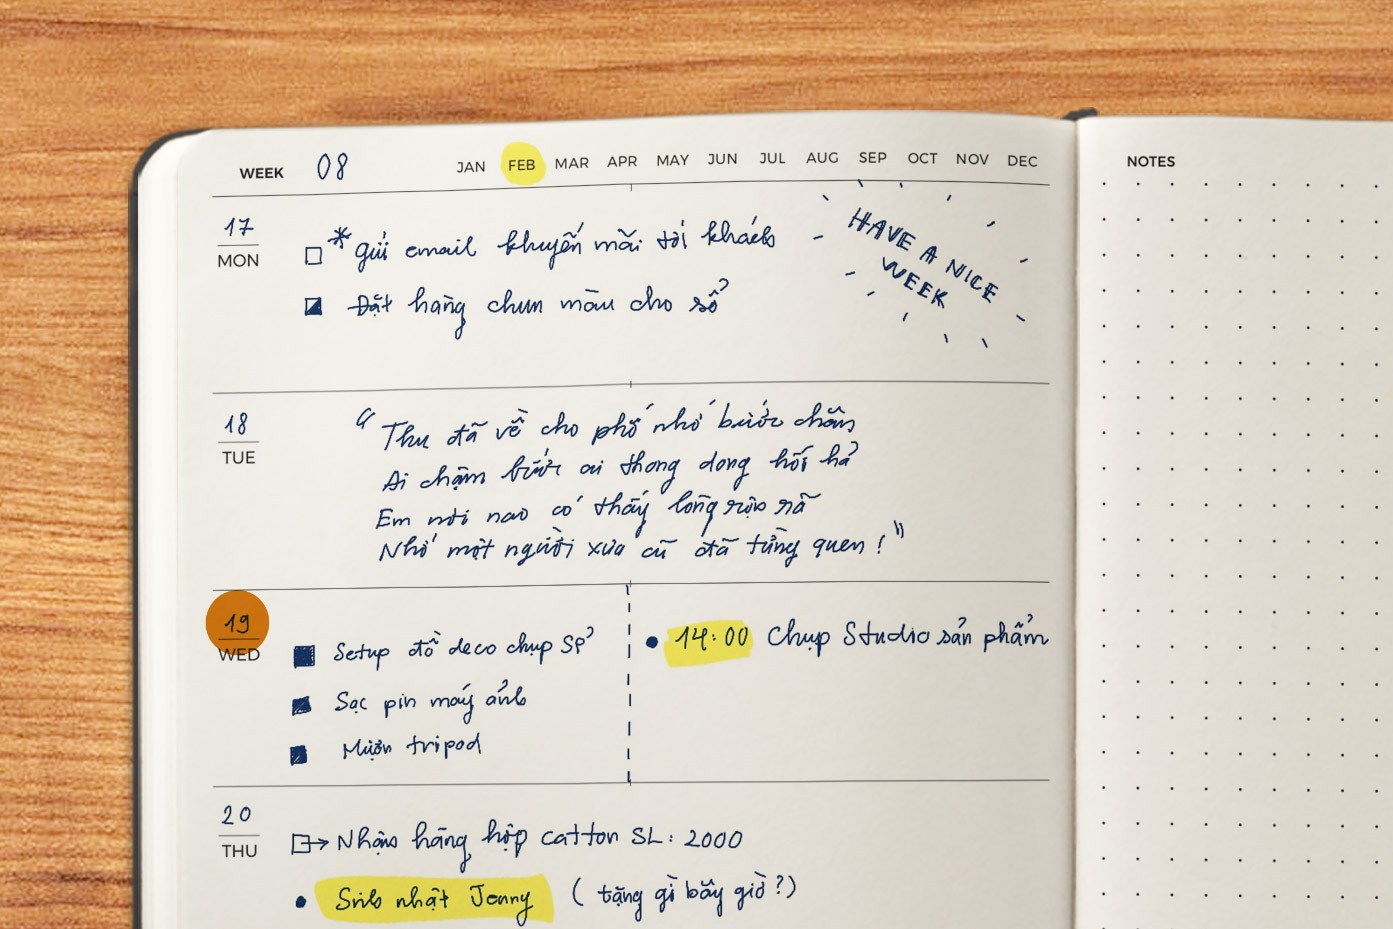 WEEK 08 JAN FEB MAR APR MAY JUN JUL AUG SEP OCT NOV DEC
17 MON
* gửi email khuyến mãi tới khách
Đặt hàng chun màu cho sổ
HAVE A NICE
WEEK
18 TUE
"Thu đã về cho phố nhớ bước chân
Ai chậm bước ai thong dong hối hả
Em nơi nao có thấy lòng rộn rã
Nhớ một người xưa cũ đã từng quen!"
19 WED
Setup đồ deco chụp SP
Sạc pin máy ảnh
Mượn tripod
14:00 Chụp Studio sản phẩm
20 THU
Nhận hàng hộp catton SL: 2000
Sinh nhật Jenny (tặng gì bây giờ?)
NOTES